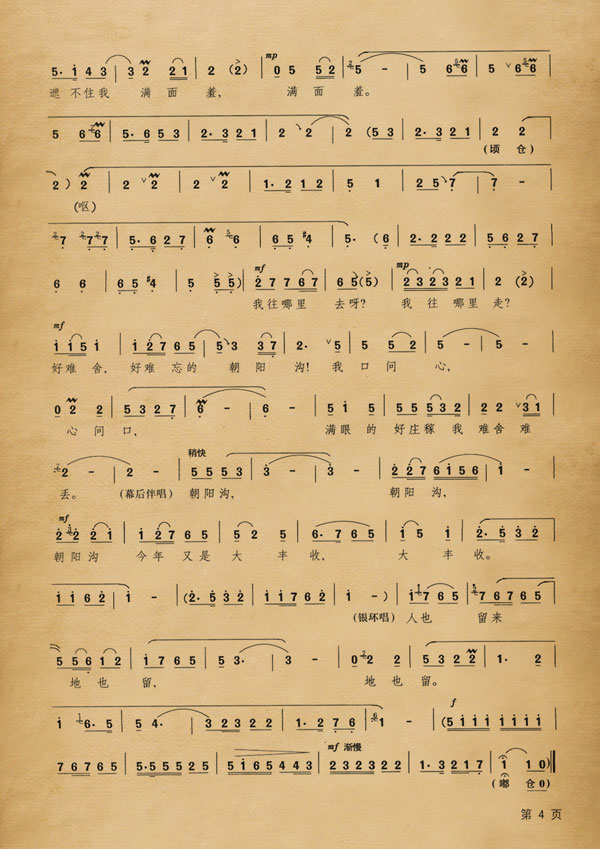 mp
5· i 4 3 | 3 2 2 1 | 2 (2) | 0 5 5 2 | 5 - | 5 6 6 | 5 6 6 |
遮 不 住 我 满 面 羞, 满 面 羞。
5 6 6 | 5· 6 5 3 | 2· 3 2 1 | 2 2 | 2 (5 3 | 2· 3 2 1 | 2 2 |
(顷 仓)
2) 2 | 2 2 | 2 2 | 1· 2 1 2 | 5 1 | 2 5 7 | 7 - |
(呕)
7 7 7 | 5· 6 2 7 | 6 6 | 6 5 #4 | 5· (6 | 2· 2 2 2 | 5 6 2 7 |
mf mp
6 6 | 6 5 #4 | 5 5 5) | 2 7 7 6 7 | 6 5 (5) | 2 3 2 3 2 1 | 2 (2) |
我 往 哪 里 去 呀? 我 往 哪 里 走?
mf
i i 5 i | i 2 7 6 5 | 5 3 3 7 | 2· 5 | 5 5 2 | 5 - | 5 - |
好 难 舍, 好 难 忘 的 朝 阳 沟! 我 口 问 心,
0 2 2 | 5 3 2 7 | 6 - | 6 - | 5 i 5 | 5 5 5 3 2 | 2 2 3 1 |
心 问 口, 满 眼 的 好 庄 稼 我 难 舍 难
稍快
2 - | 2 - | 5 5 5 3 | 3 - | 3 - | 2 2 7 6 i 5 6 | i - |
丢。 (幕后伴唱) 朝 阳 沟, 朝 阳 沟,
mf
2 2 2 i | i 2 7 6 5 | 5 2 5 | 6· 7 6 5 | i 5 i | 2· 5 3 2 |
朝 阳 沟 今 年 又 是 大 丰 收, 大 丰 收。
i i 6 2 | i - | (2· 5 3 2 | i i 7 6 2 | i -) | i i 7 6 5 | 7 6 7 6 5 |
(银环唱) 人 也 留 来
5 5 6 i 2 | i 7 6 5 | 5 3· | 3 - | 0 2 2 | 5 3 2 2 | 1· 2 |
地 也 留, 地 也 留。
f
i 6· 5 | 5 4· | 3 2 3 2 2 | 1· 2 7 6 | 1 - | (5 i i i i i i i |
mf 渐慢
7 6 7 6 5 | 5·5 5 5 2 5 | 5 i 6 5 4 4 3 | 2 3 2 3 2 2 | 1· 3 2 1 7 | 1 1 0)
(嘟 仓 0)
第 4 页